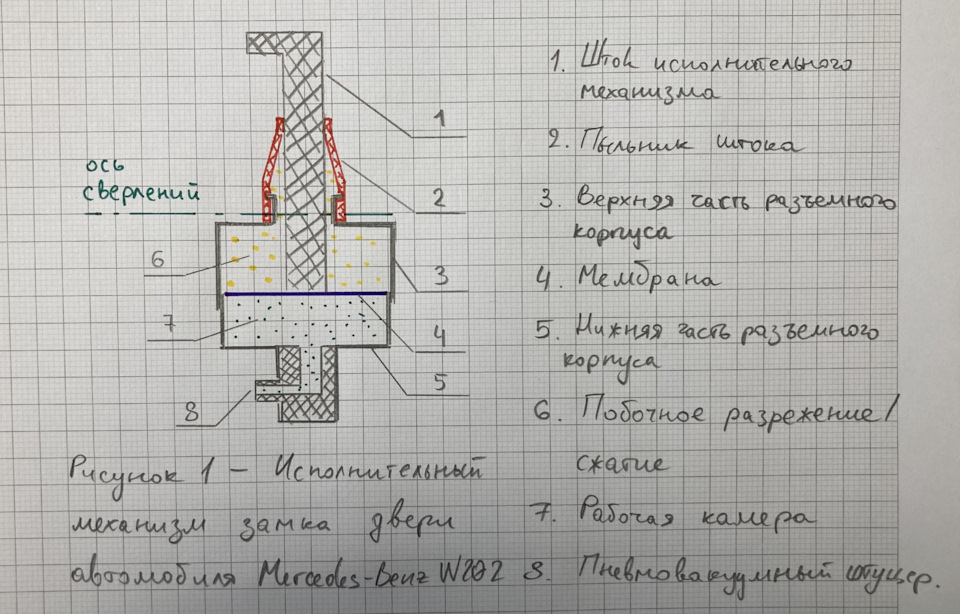 1. Шток исполнительного
механизма
2. Пыльник штока
3. Верхняя часть разъемного
корпуса
4. Мембрана
5. Нижняя часть разъемного
корпуса
6. Побочное разрежение/
сжатие
7. Рабочая камера
8. Пневмовакуумный штуцер.
ось
сверлений
1
2
3
4
5
6
7
8
Рисунок 1 – Исполнительный
механизм замка двери
автомобиля Mercedes-Benz W202